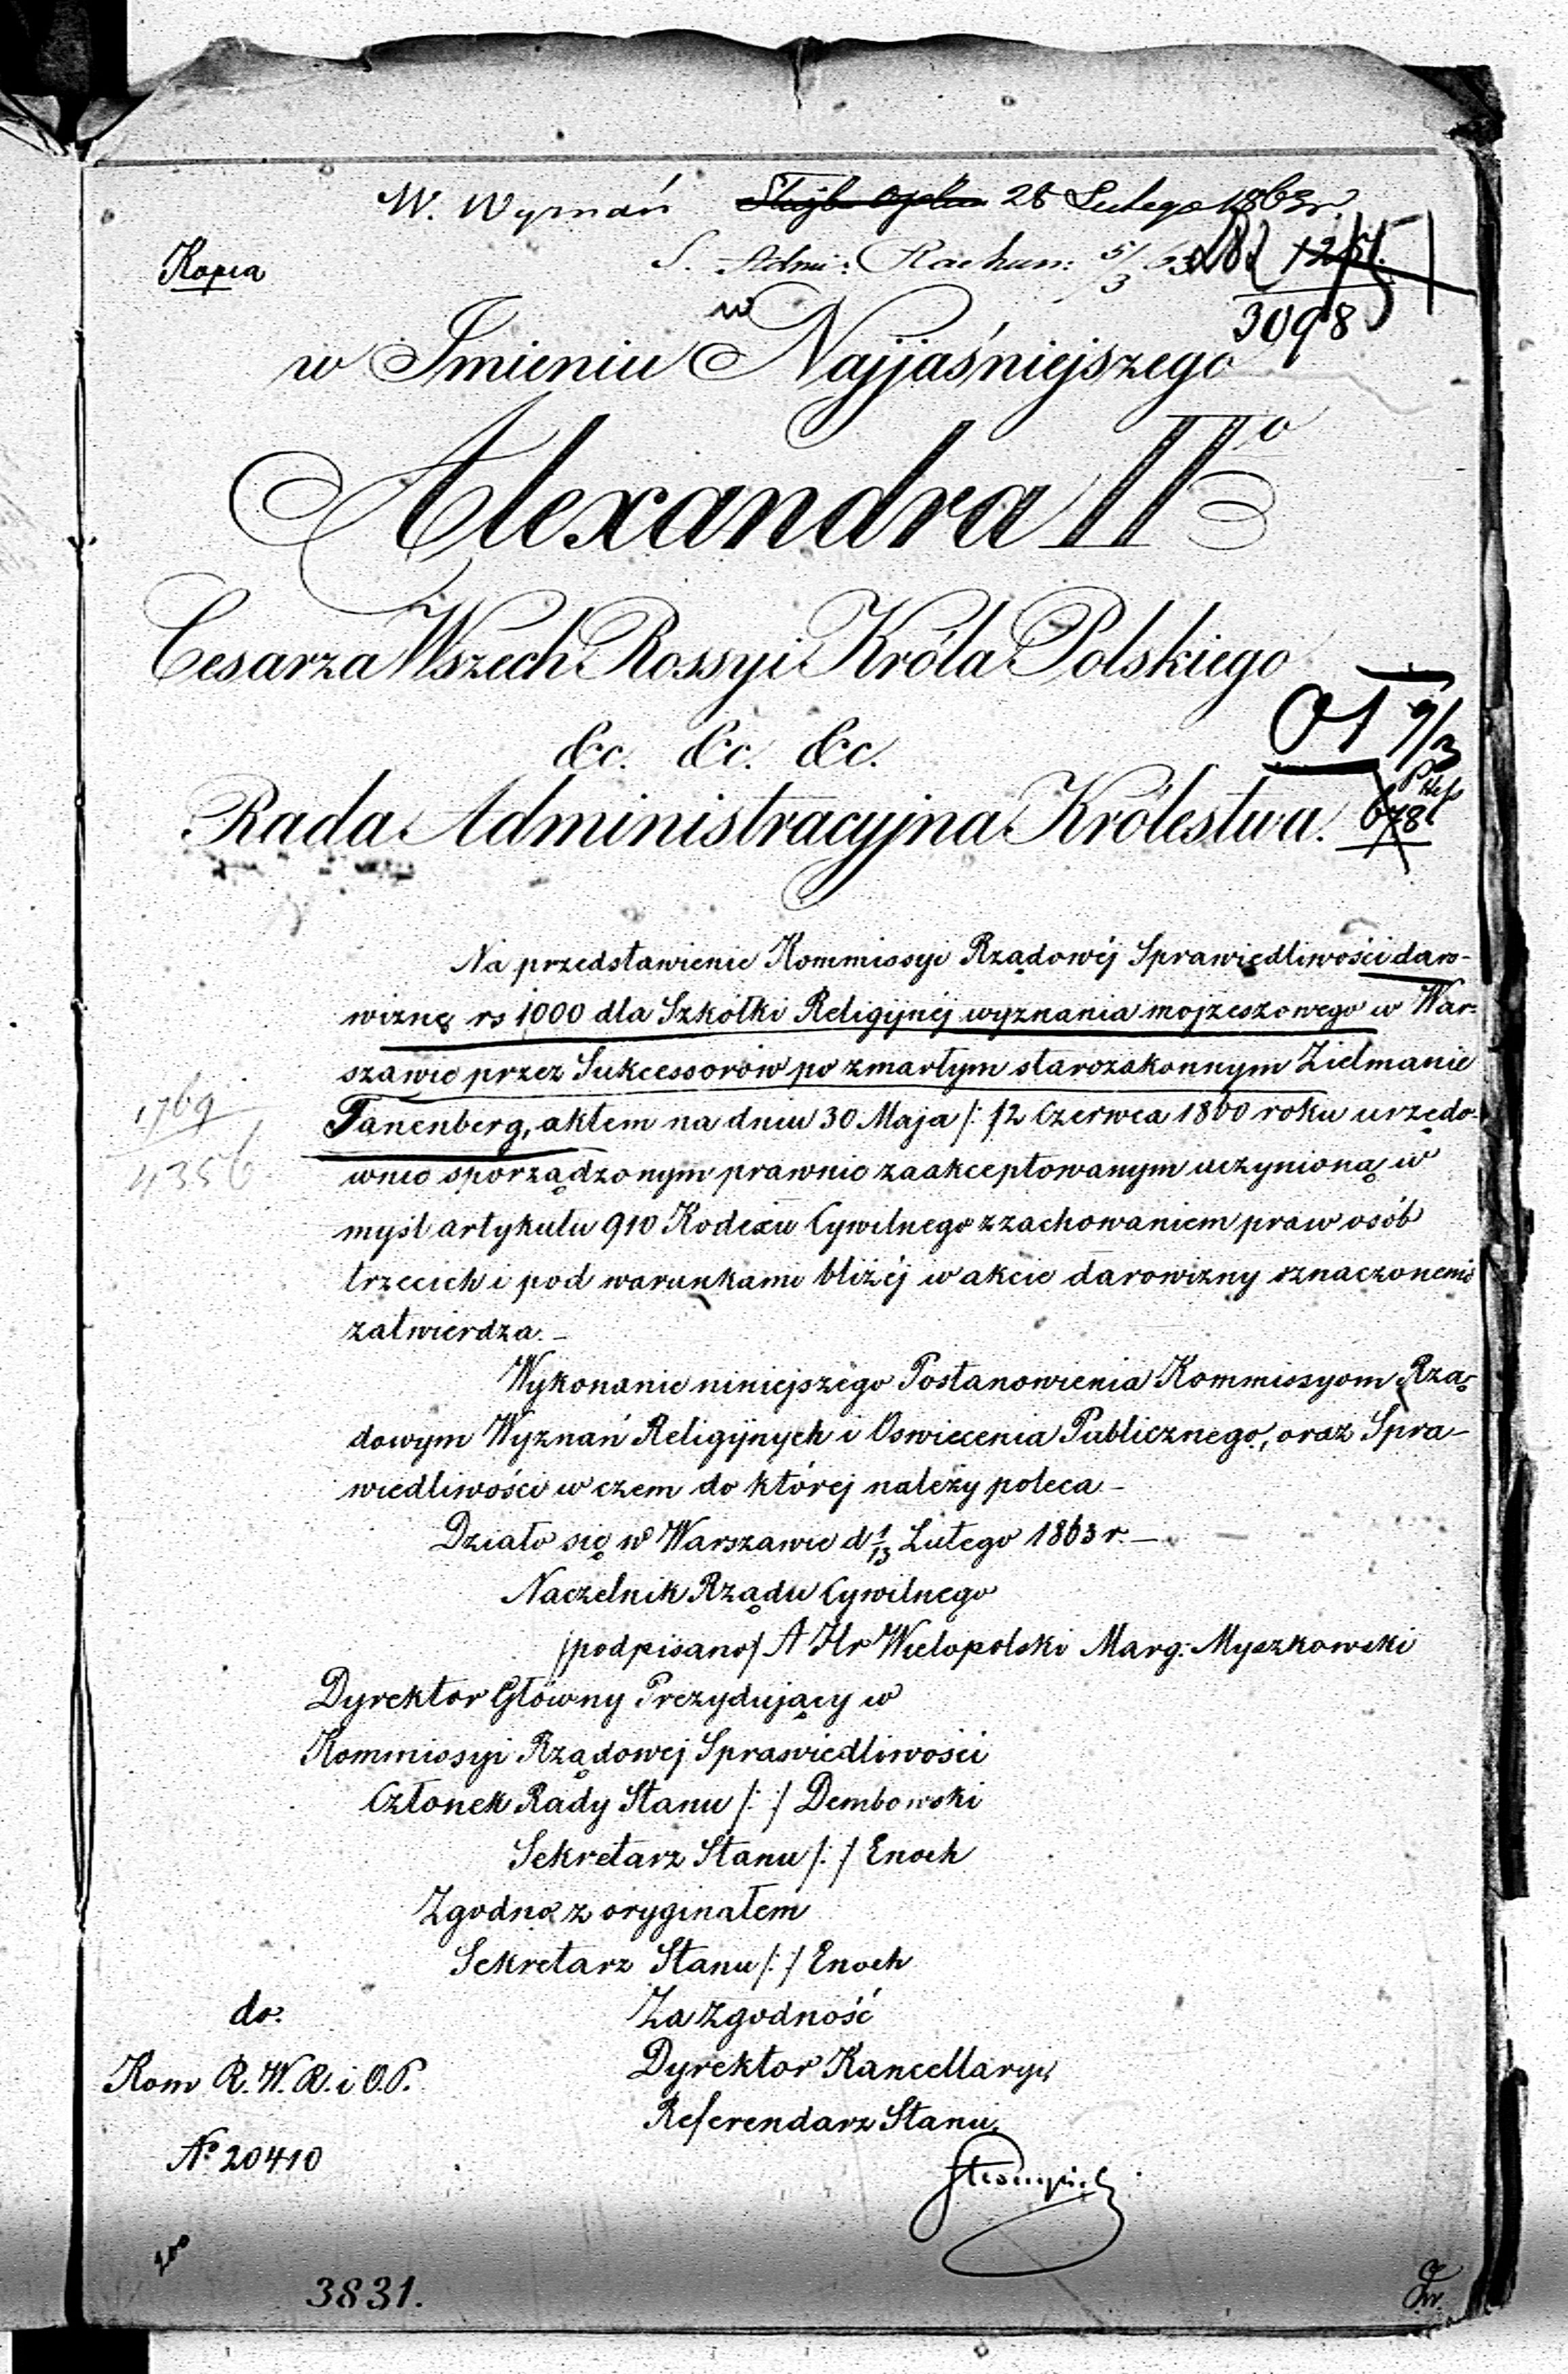 W. Wyznań 28 Lutego 1863 r.
Kopia
S. Admi: Rachun: 5/3 63
3098
w Imieniu Najjaśniejszego
Alexandra IIo
Cesarza Wszech Rossyi Króla Polskiego
&c. &c. &c.
9/3
Rada Administracyjna Królestwa.
678
Na przedstawienie Kommissyi Rządowéj Sprawiedliwości daro-
wiznę rs 1000 dla Szkółki Religijnéj wyznania mojżeszowego w War-
szawie przez Sukcessorów po zmarłym starozakonnym Zielmanie
1769
Tanenberg, aktem na dniu 30 Maja /:/ 12 Czerwca 1860 roku urzędo-
4356
wnie sporządzonym prawnie zaakceptowanym uczynioną w
myśl artykułu 910 Kodexu Cywilnego z zachowaniem praw osób
trzecich i pod warunkami bliżéj w akcie darowizny oznaczonemi
zatwierdza. –
Wykonanie niniejszego Postanowienia Kommissyom Rzą-
dowym Wyznań Religijnych i Oswiecenia Publicznego, oraz Spra-
wiedliwości w czem do któréj należy poleca –
Działo się w Warszawie d 1/13 Lutego 1863 r. –
Naczelnik Rządu Cywilnego
/podpisano/ A Hr Wielopolski Marg: Myszkowski
Dyrektor Główny Prezydujący w
Kommissyi Rządowej Sprawiedliwości
Członek Rady Stanu /:/ Dembowski
Sekretarz Stanu /:/ Enoch
Zgodno z oryginałem
Sekretarz Stanu /:/ Enoch
do:
Za Zgodność
Kom R. W. R. i O. P.
Dyrektor Kancellaryi
Referendarz Stanu,
No 20410
3831.